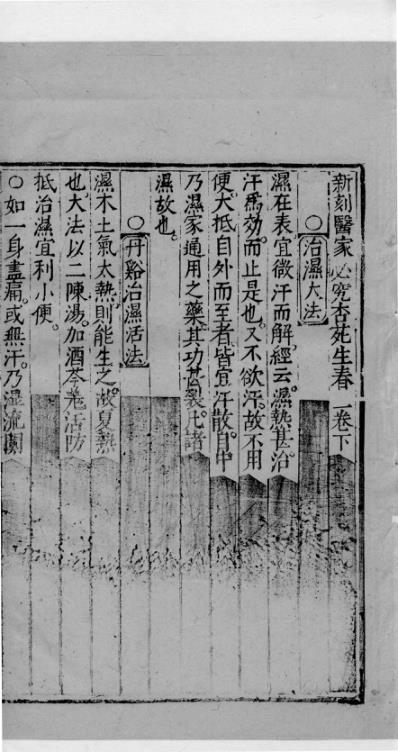 新刻醫家必究杏苑生春 一卷下
○治濕大法
濕在表宜微汗而解經云濕熱甚治
汗為効而止是也又不欲汗故不用
便大抵自外而至者皆宜汗散自中
乃濕家通用之藥其功甚 諸
濕故也
○丹谿治濕活法
濕木土氣太熱則能生之故夏熱
也大法以二陳湯加酒芩羌活防
抵治濕宜利小便
○如一身盡痛或無汗乃濕流關